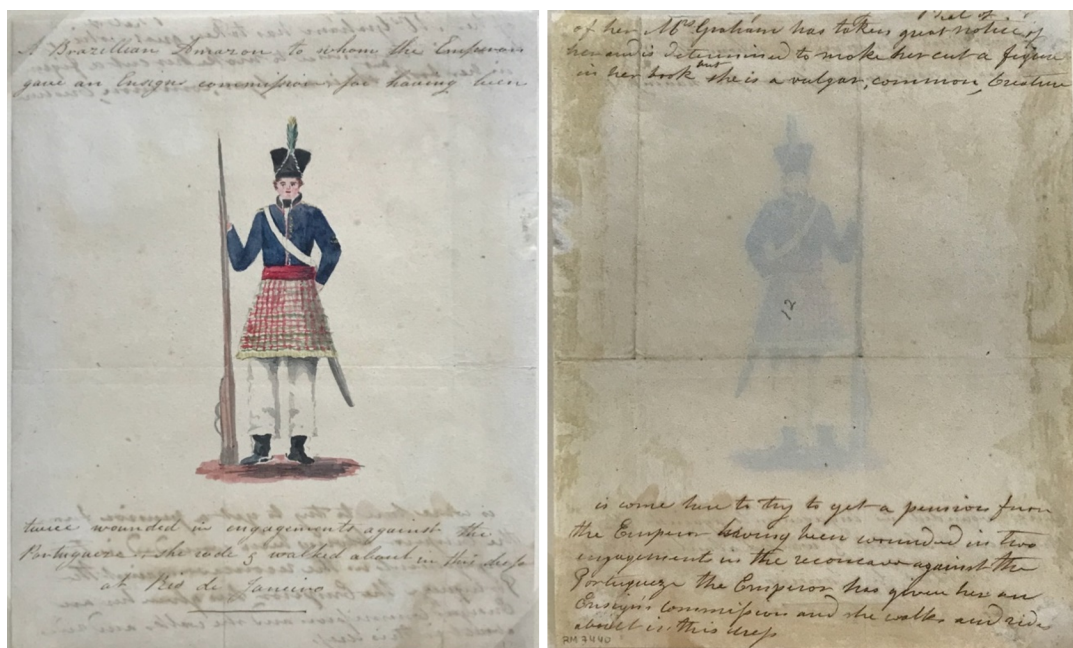 A Brazillian Amazon to whom the Emperor
gave an Ensigns commission for having been
twice wounded in engagements against the
Portugueze. she rode & walked about in this dress
at Rio de Janeiro
of her Mrs Graham has taken great notice of
her and is determined to make her cut a figure
in her book but she is a vulgar, common, Creature
12
is come here to try to get a pension from
the Emperor having been wounded in two
engagements in the reconcave against the
Portugueze the Emperor has given her an
Ensign's Commission and she walks and ride
about in this dress
RM 7440